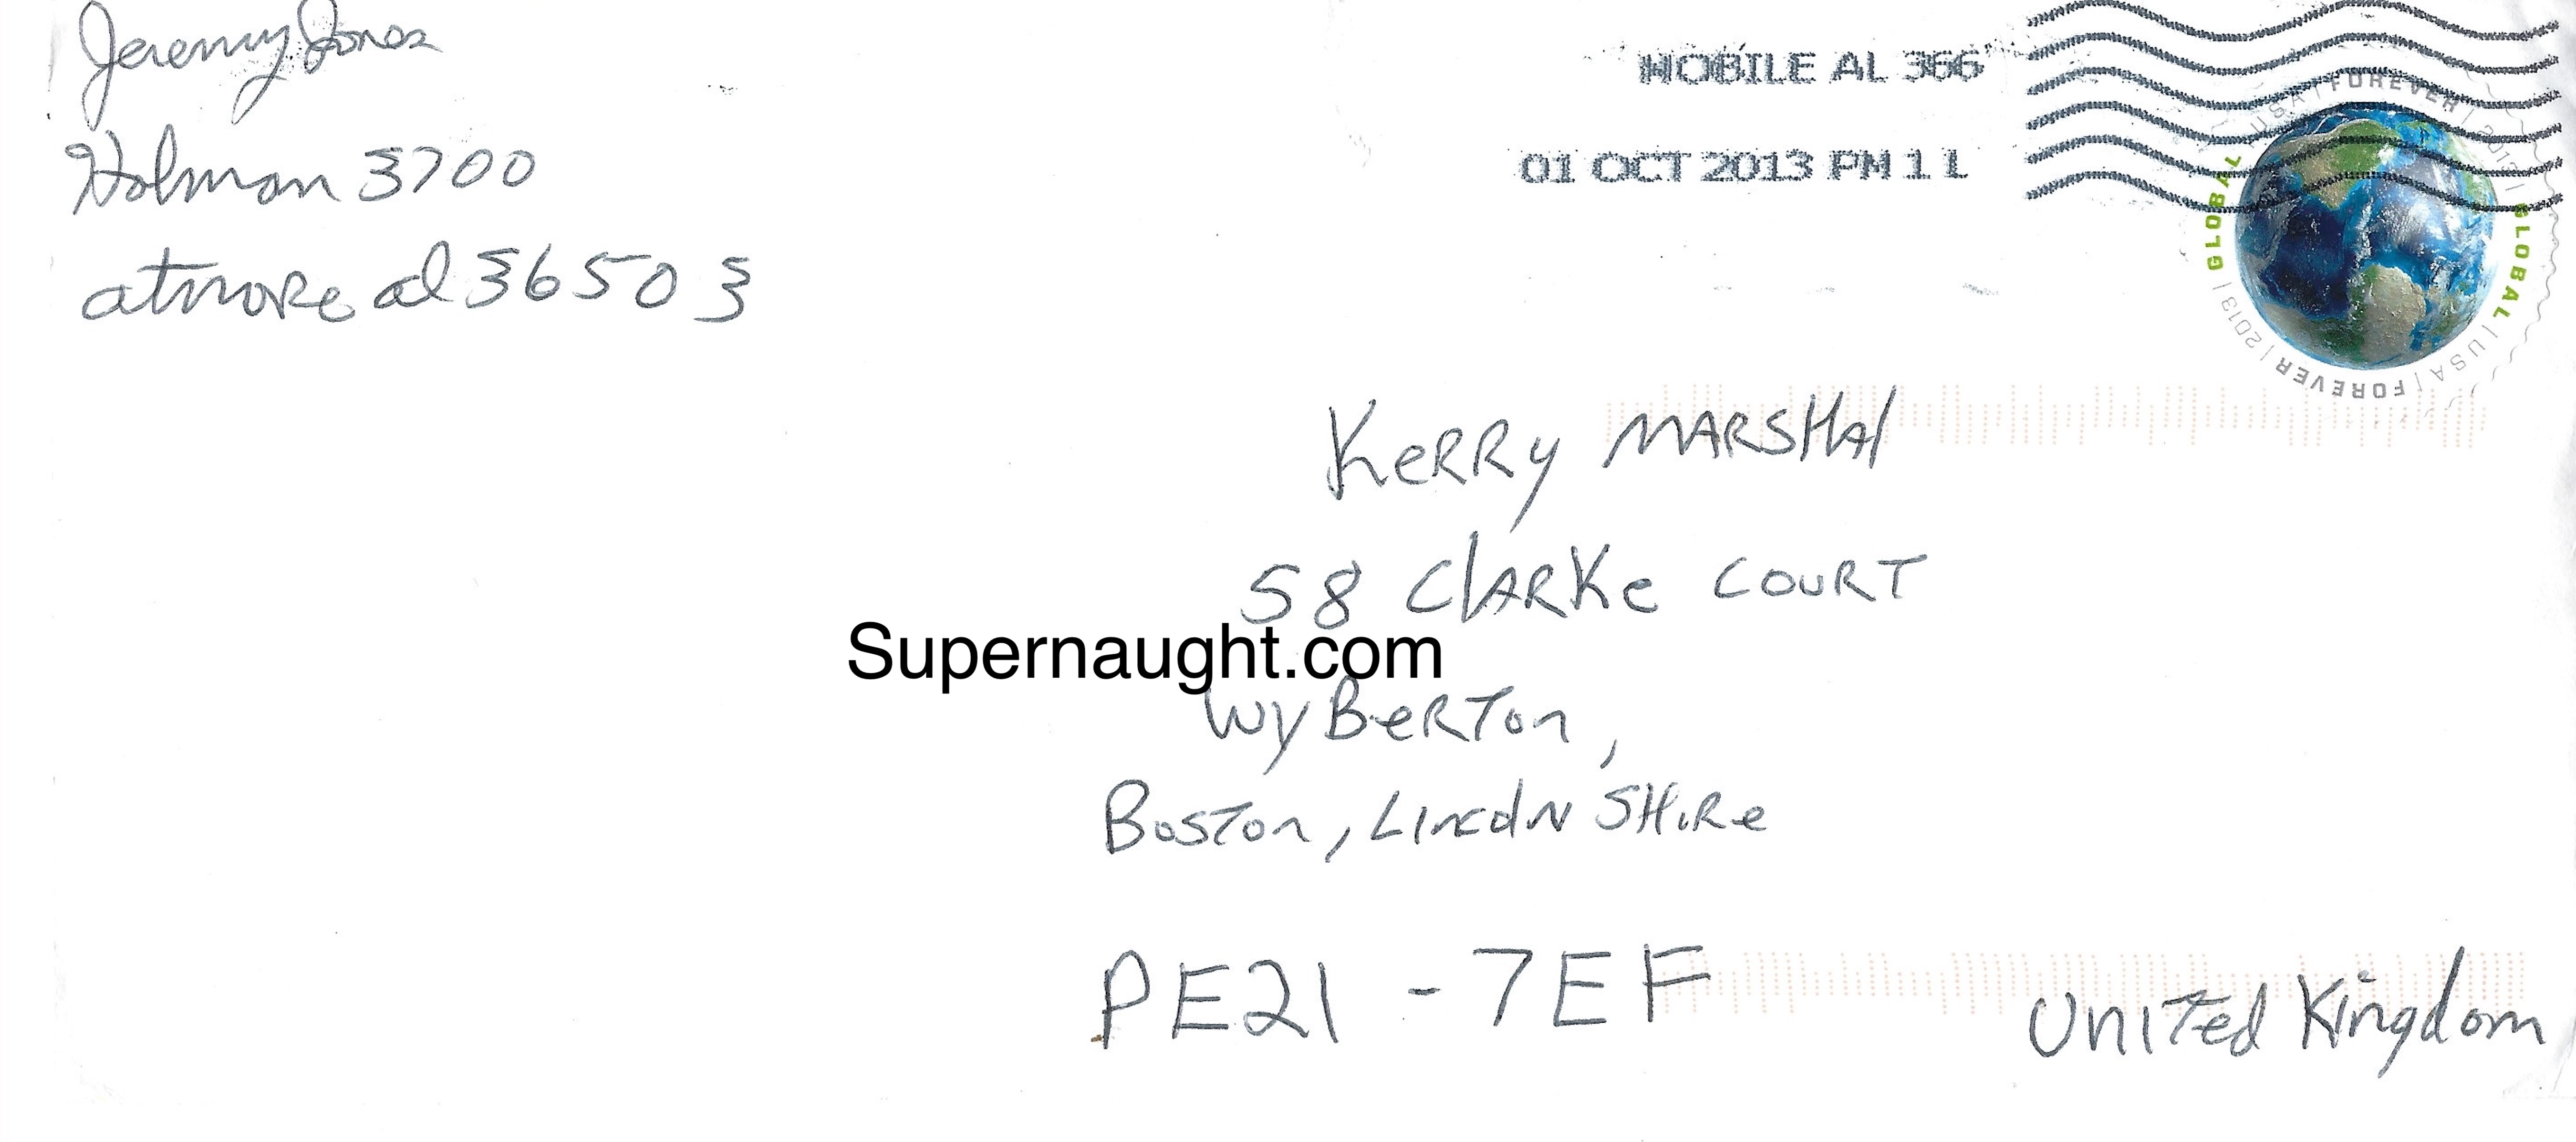 Jeremy Jones
Holman 3700
atmore al 36503
MOBILE AL 366
01 OCT 2013 PM 1 L
GLOBAL | USA | FOREVER | 2013 | GLOBAL | USA | FOREVER | 2013 |
KeRRy MARSHAl
58 ClARKe COURT
Supernaught.com
WyBeRTon,
BosTon, LincolN SHiRe
PE21 - 7EF
UniTed Kingdom